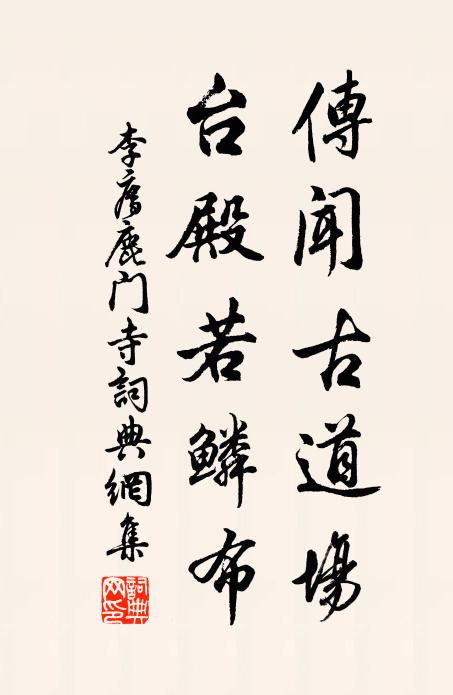 傳聞古道場
台殿若鱗布
李廌鹿門寺詞典網集
詞典網印